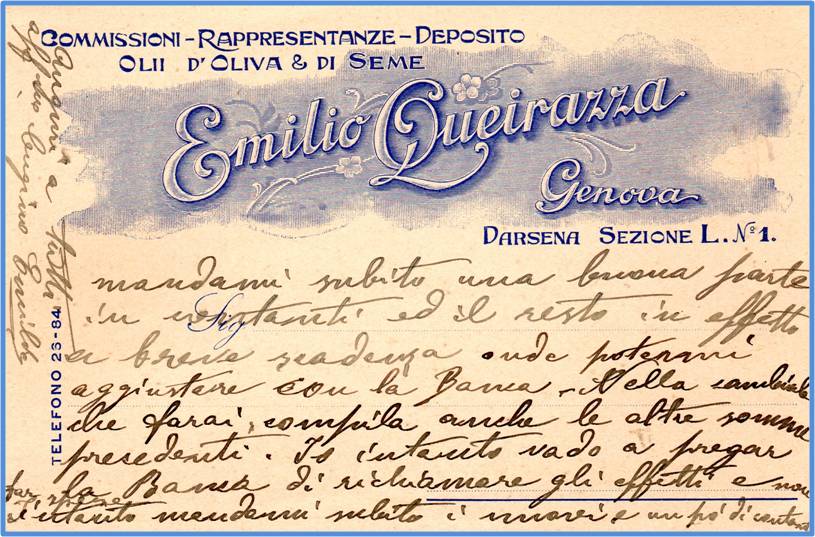 COMMISSIONI - RAPPRESENTANZE - DEPOSITO
OLII D'OLIVA & DI SEME
Emilio Queirazza
Genova
DARSENA SEZIONE L. Nº 1.
TELEFONO 23-84
Sig
mandami subito una buona parte
in contanti ed il resto in effetto
a breve scadenza onde potermi
aggiustare con la Banca - Nella cambiale
che farai, compila anche le altre somme
precedenti. Io intanto vado a pregar
la Banca di richiamare gli effetti e non
far spese
intanto mandami subito i e un pó di contanti
Auguri a tutti
aff cugino Emilio